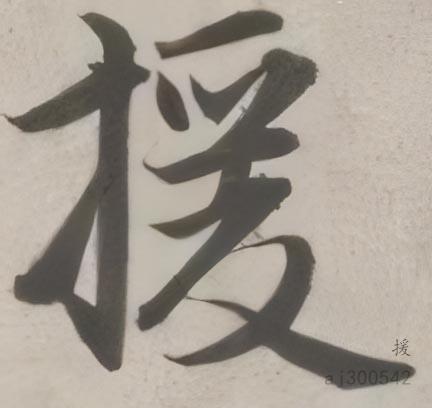 援
援
aj300542